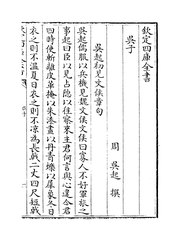 欽定四庫全書
吳子
周 吳起 撰
吳起初見文侯章句
吳起儒服以兵機見魏文侯文侯曰寡人不好軍旅之
事起曰臣以見占隱以往察來主君何言與心違今君
四時使斬離皮革掩以朱漆畫以丹青爍以犀象冬日
衣之則不溫夏日衣之則不凉為長戟二丈四尺短戟